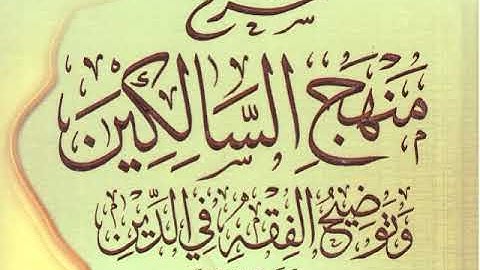 شرح
مَنْهَجِ السَّالِكِين
وَتَوضِيحُ الفِقْهِ فِي الدِّينِ